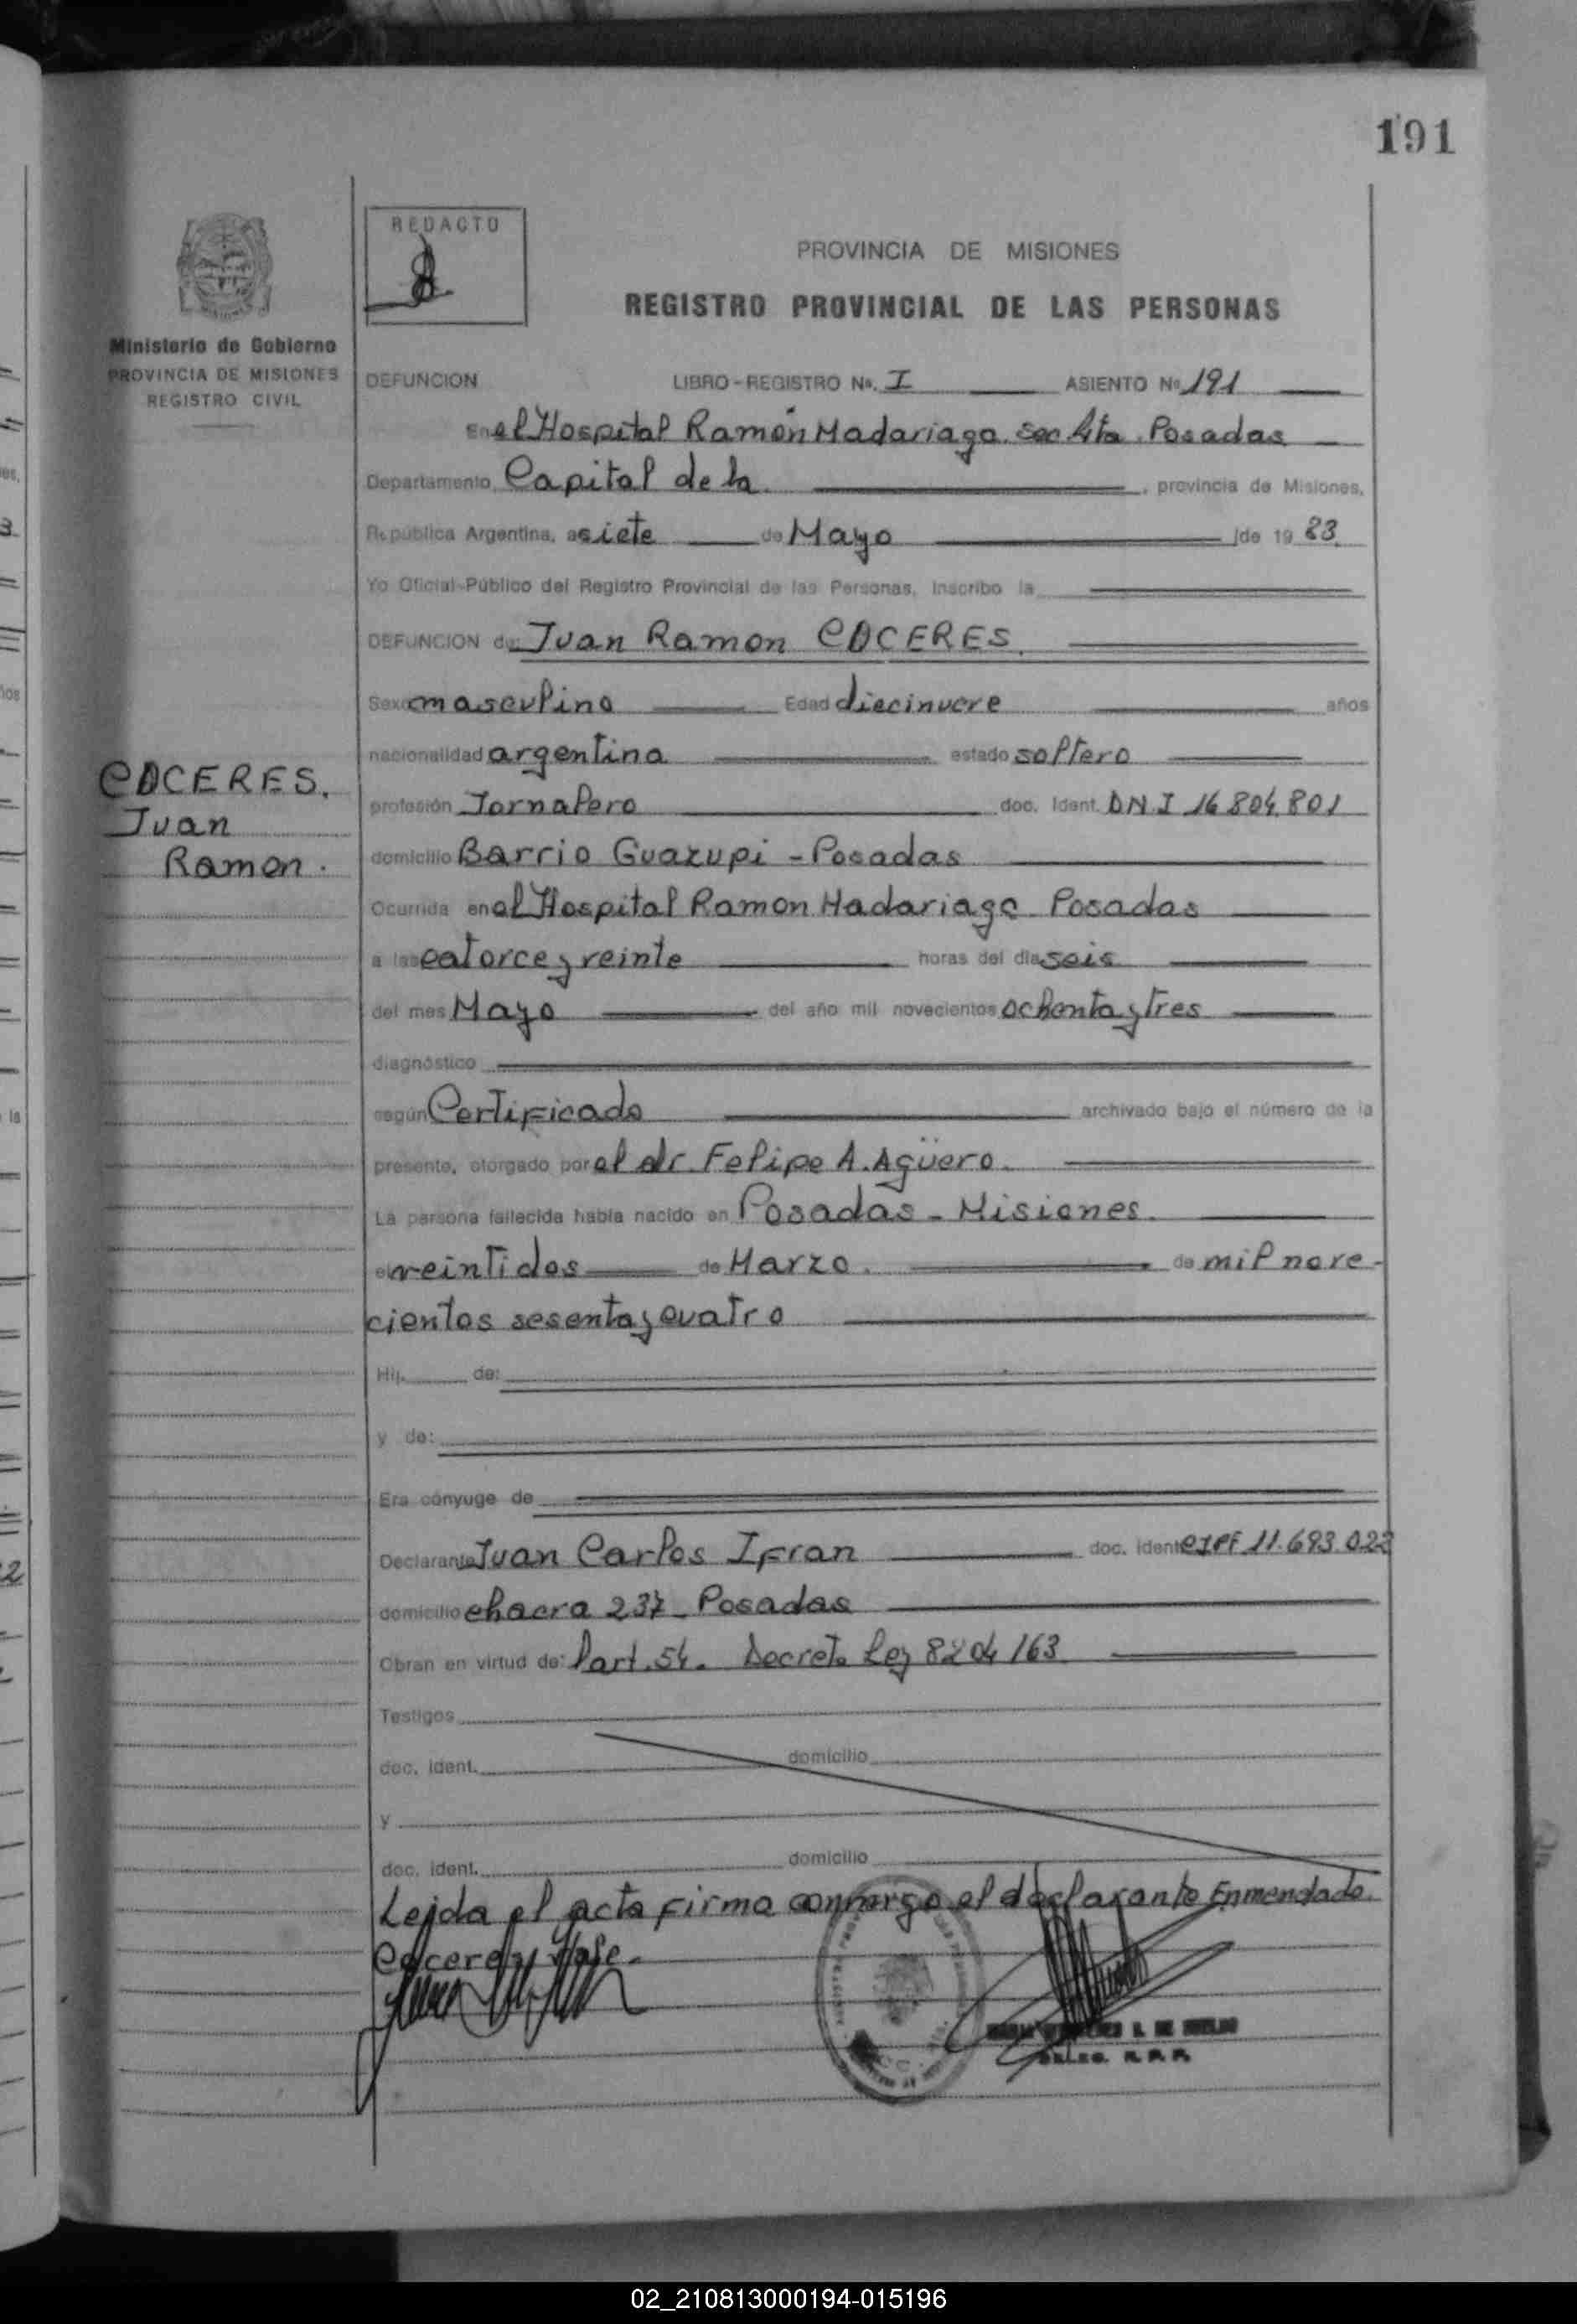 191
REDACTO
PROVINCIA DE MISIONES
REGISTRO PROVINCIAL DE LAS PERSONAS
Ministerio de Gobierno
PROVINCIA DE MISIONES
REGISTRO CIVIL
DEFUNCION LIBRO-REGISTRO Nº. I ASIENTO Nº 191
En el Hospital Ramón Madariaga Sec 4ta Posadas
Departamento Capital de la , provincia de Misiones,
República Argentina, a siete de Mayo de 19 83
Yo Oficial-Público del Registro Provincial de las Personas, inscribo la
DEFUNCION de: Juan Ramon COCERES.
Sexo masculino Edad diecinueve años
nacionalidad argentina estado soltero
COCERES.
Juan
Ramon.
profesión Jornalero doc. Ident. DNI 16.804.801
domicilio Barrio Guazupi - Posadas
Ocurrida en el Hospital Ramon Madariaga Posadas
a las catorce y veinte horas del día seis
del mes Mayo del año mil novecientos ochenta y tres
diagnóstico
según Certificado archivado bajo el número de la
presente, otorgado por el dr. Felipe A. Agüero.
La persona fallecida había nacido en Posadas - Misiones.
el veintidos de Marzo. de mil nove-
cientos sesenta y cuatro
Hij. de:
y de:
Era cónyuge de
Declarante Juan Carlos Ifran doc. ident. CIPF 11.693.022
domicilio chacra 237 - Posadas
Obran en virtud de: l'art. 54. Decreto Ley 8204/63
Testigos
doc. ident. domicilio
y
doc. ident. domicilio
Leida el acta firma conmigo el declarante Enmendado.
Coceres. Vale.
R. P. P.
02_210813000194-015196